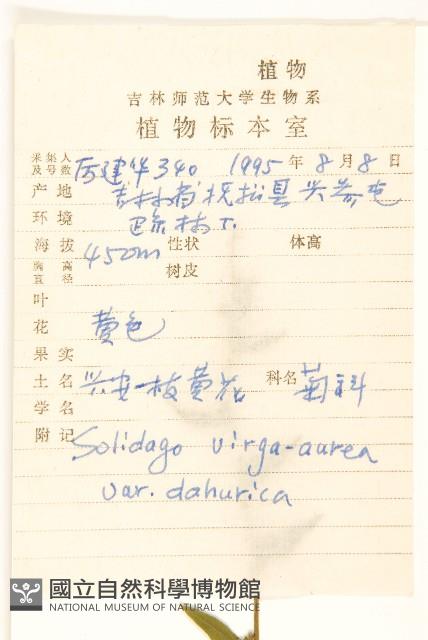 植物
吉林师范大学生物系
植物标本室
采集人及号数 历建华340 1995年8月8日
产地 吉林省抚松县兴参屯
环境 疏林下
海拔 450m 性状 体高
胸高直径 树皮
叶
花 黄色
果实
土名 兴安一枝黄花 科名 菊科
学名
附记 Solidago virga-aurea
var. dahurica
國立自然科學博物館
NATIONAL MUSEUM OF NATURAL SCIENCE